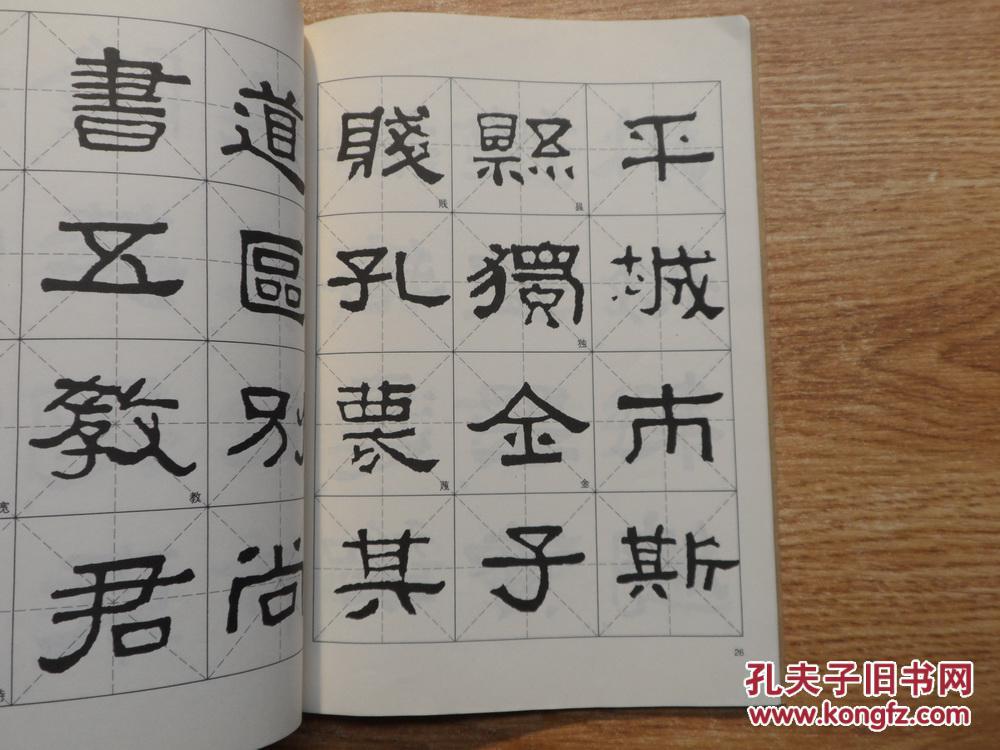 平城市斯
縣獨金子
县
独
金
賤孔
其
贱
26
道區別尚
書五教君
教
宽
孔夫子旧书网
www.kongfz.com